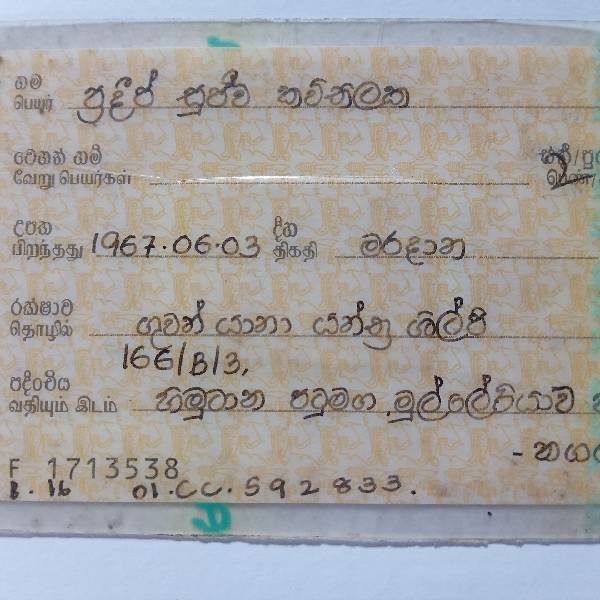 නම
பெயர் ප්‍රදීප් සුජීව කවිතිලක
වෙනත් නම්
வேறு பெயர்கள்
උපන් දින
பிறந்தது திகதி 1967.06.03 මරදාන
රක්ෂාව
தொழில் ගුවන් යානා යන්ත්‍ර ශිල්පී
166/B/3,
පදිංචිය
வதியும் இடம் හිඹුටාන පටුමග, මුල්ලේරියාව
F 1713538
B. 16 01.CC.592833.